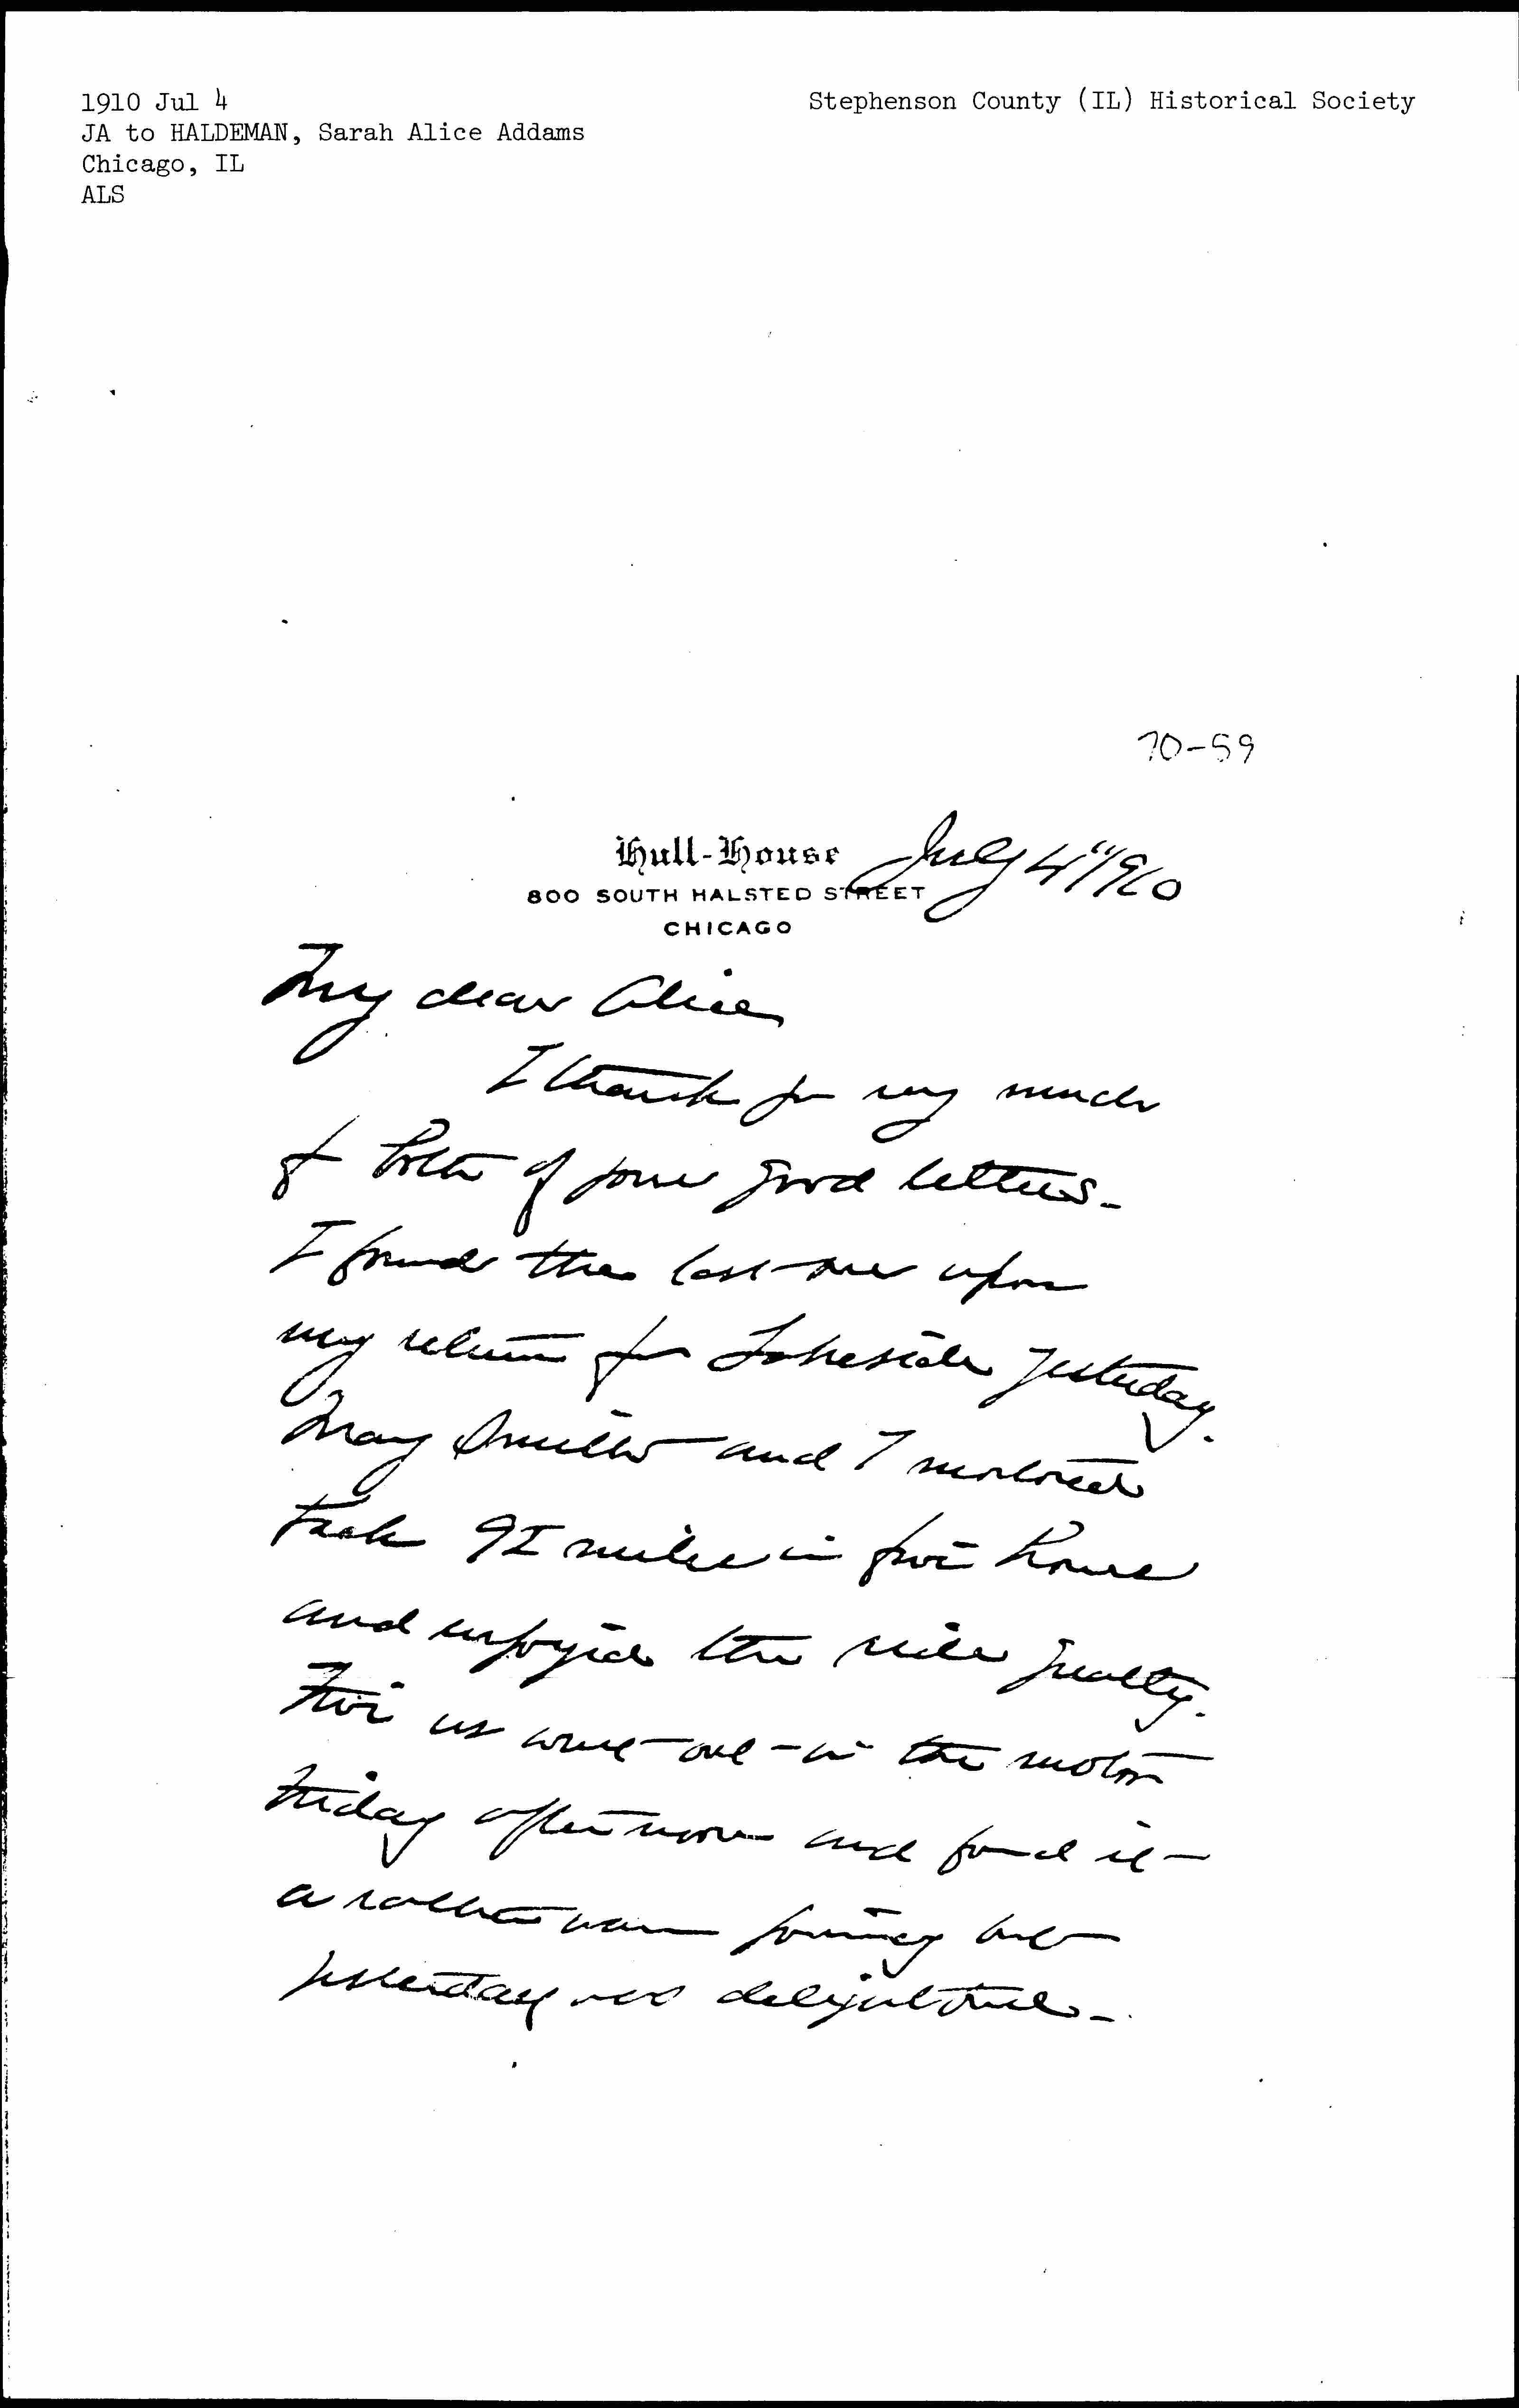 1910 Jul 4
JA to HALDEMAN, Sarah Alice Addams
Chicago, IL
ALS
Stephenson County (IL) Historical Society
70-59
Hull-House
800 SOUTH HALSTED STREET
CHICAGO
July 4" 1910
My dear Alice
I thank you very much
for both of your good letters-
I found the last one upon
my return from Lakeside yesterday.
Mary Smith and I motored
back 92 miles in five hours
and enjoyed the ride greatly.
Five us went out in the motor
Friday afternoon and found it
a rather warm journey but
yesterday was delightful-